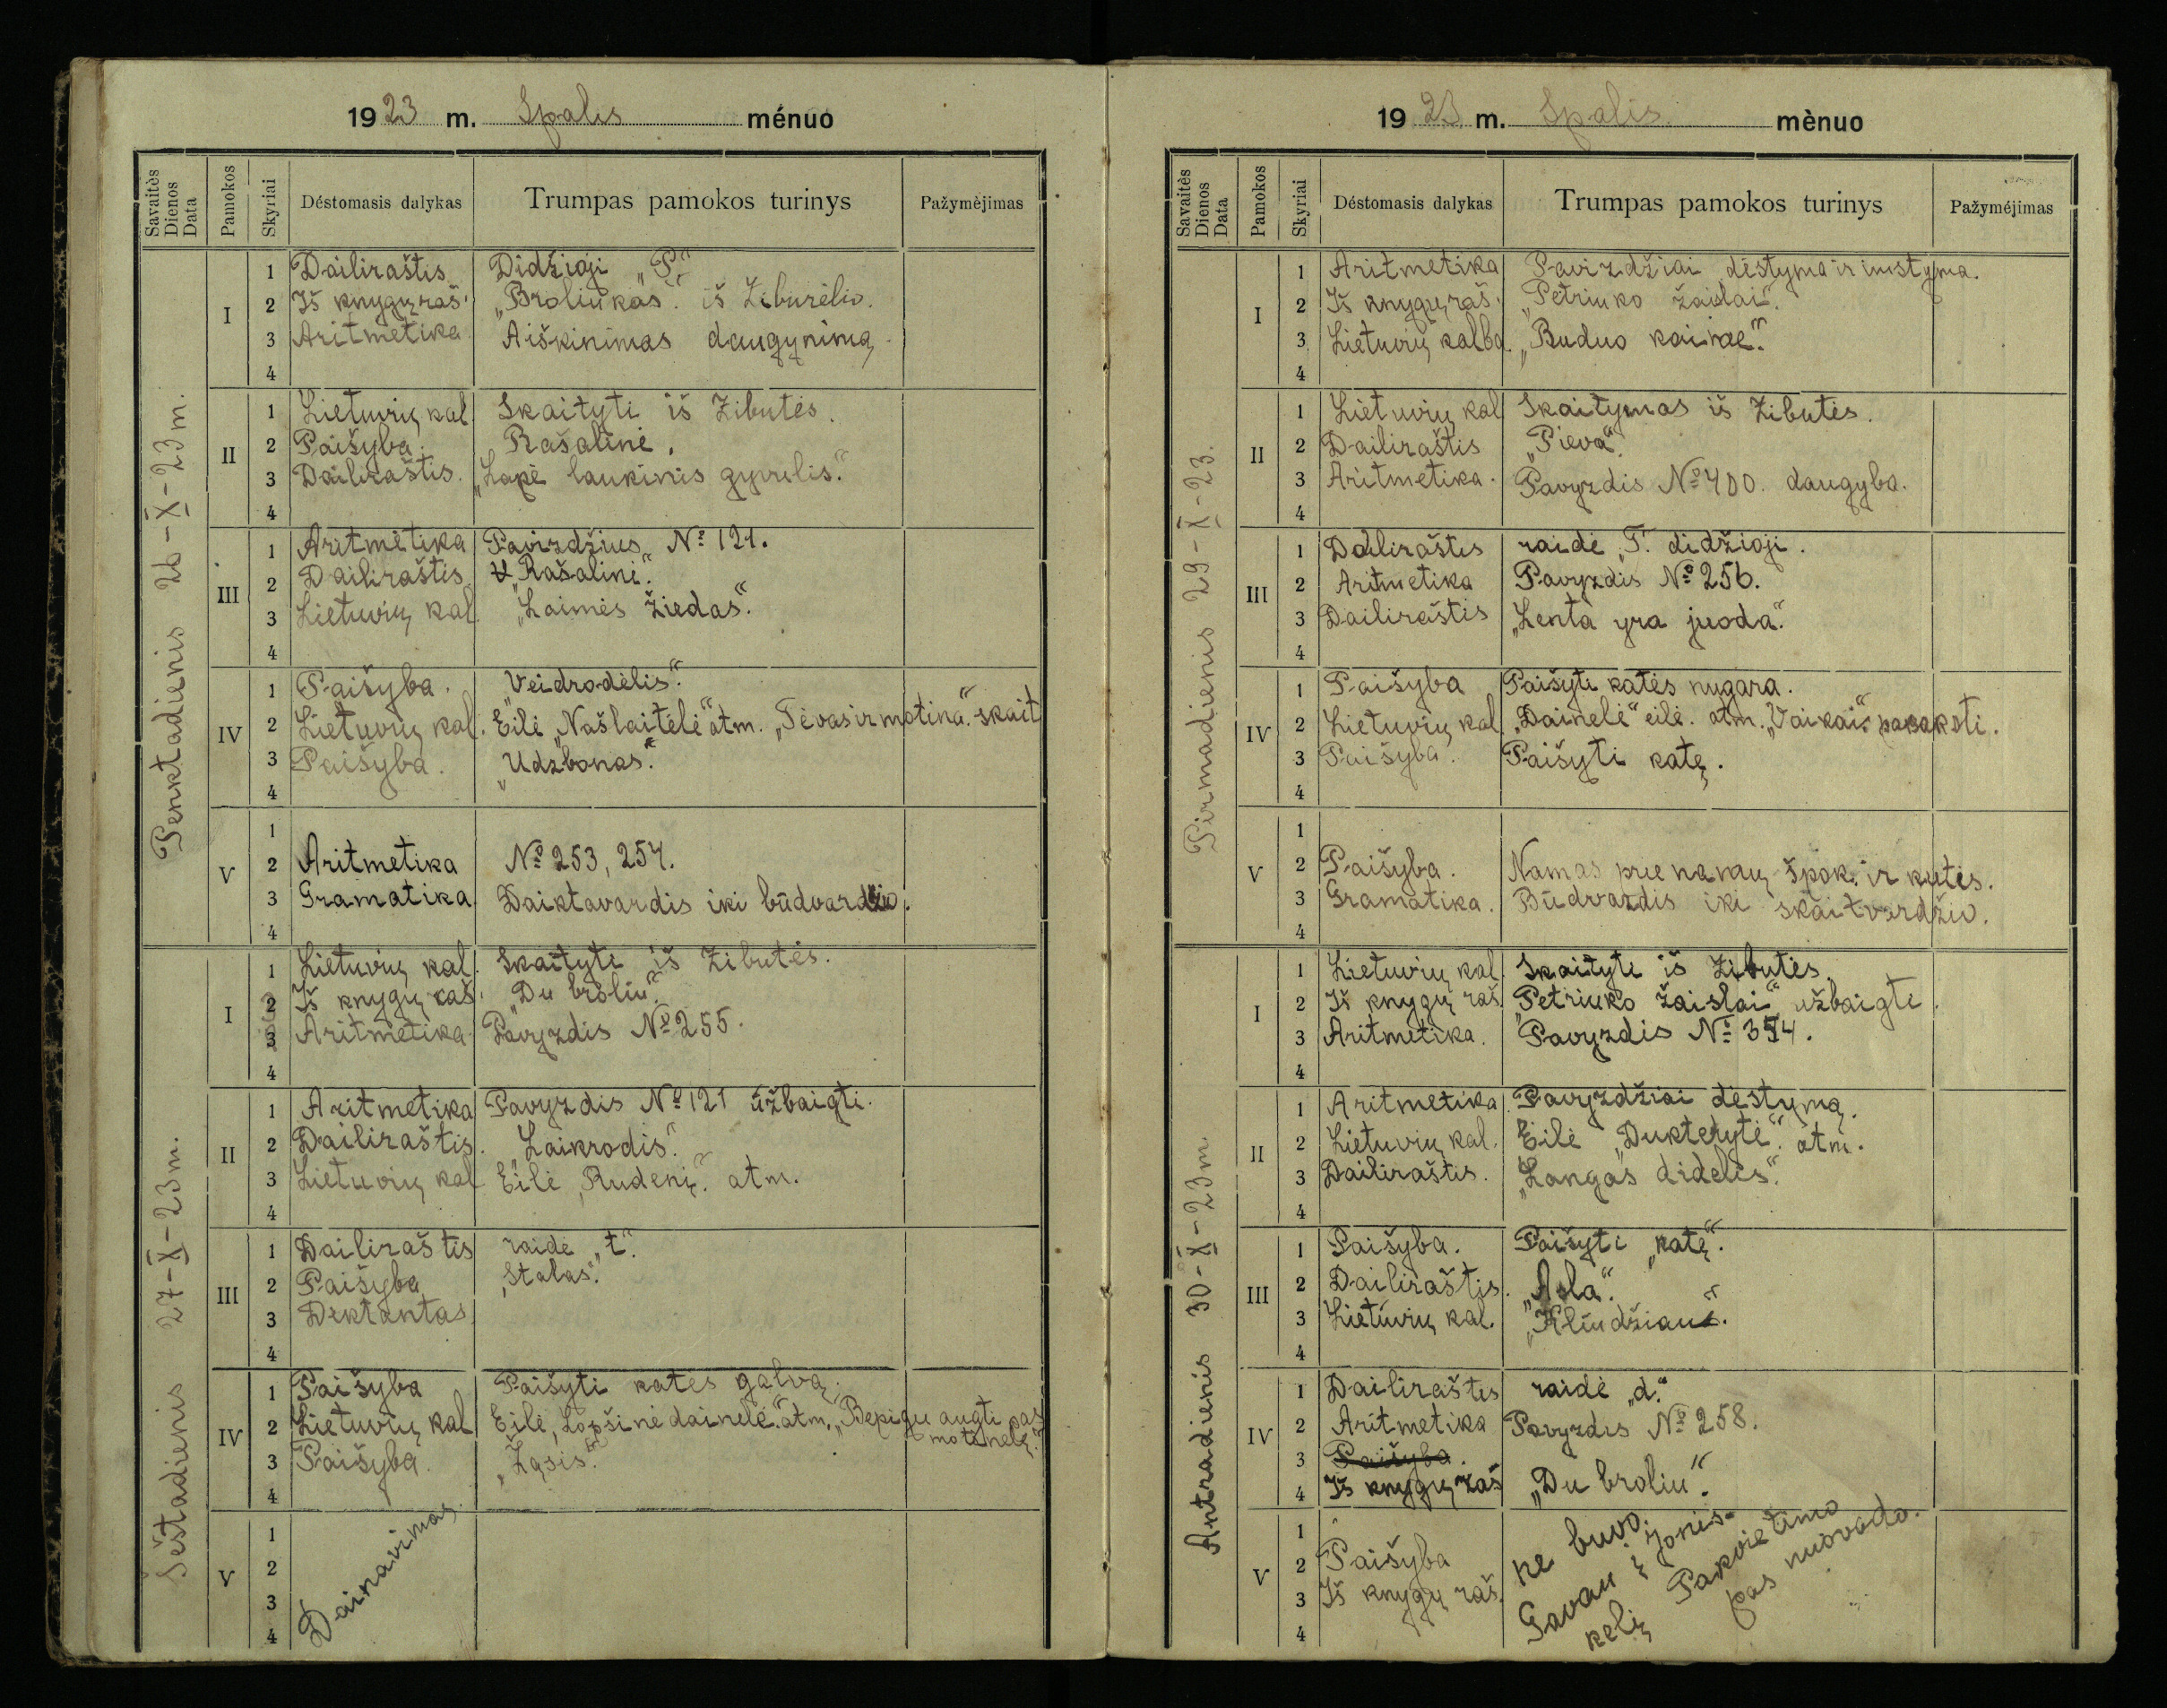 1923 m. Spalis ménuo
Savaitės Dienos Data
Pamokos
Skyriai
Déstomasis dalykas
Trumpas pamokos turinys
Pažymėjimas
Penktadienis 26-X-23 m.
I
1 Dailiraštis Didžioji „P“.
2 Iš knygų raš. „Broliukas“. iš Žiburėlio.
3 Aritmetika Aiškinimas daugynimą
4
II
1 Lietuvių kal Skaityti iš Žibutės.
2 Paišyba. Rašalinė.
3 Dailiraštis. „Lapė laukinis gyvulis“.
4
III
1 Aritmėtika Pavizdžius № 121.
2 Dailiraštis „Rašalini“.
3 Lietuvių kal. „Laimės žiedas“.
4
IV
1 Paišyba. „Veidrodėlis“.
2 Lietuvių kal. Eilė „Našlaitėlė“ atm. „Tėvas ir motina“. skait
3 Paišyba. „Udzbonas“.
4
V
1
2 Aritmetika № 253, 254.
3 Gramatika Daiktavardis iki būdvardžio.
4
Šeštadienis 27-X-23m.
I
1 Lietuvių kal. Skaityti iš Žibutės.
2 Iš knygų raš. „Du broliu“.
3 Aritmetika. Pavyzdis № 255.
4
II
1 Aritmetika Pavyzdis № 121 užbaigti.
2 Dailiraštis. „Laikrodis“.
3 Lietuvių kal Eilė „Rudenį“. atm.
4
III
1 Dailiraštis raidė „t“.
2 Paišyba „Stalas“.
3 Dektantas
4
IV
1 Paišyba Paišyti katės galvą.
2 Lietuvių kal Eilė „Lopšinė dainelė“. atm. „Bepigu augti pas
motinėlę“.
3 Paišyba. „Žąsis“.
4
V
1
2
3
4
Dainavimas
1923 m. Spalis mènuo
Savaitės Dienos Data
Pamokos
Skyriai
Déstomasis dalykas
Trumpas pamokos turinys
Pažyméjimas
Pirmadienis 29-X-23.
I
1 Aritmetika Pavizdžiai dėstyma ir
2 Iš knygų raš. „Petriuko žaislai“.
3 Lietuvių kalba. „Buduo kaime“.
4
II
1 Lietuvių kal Skaitymas iš Žibutės.
2 Dailiraštis „Pieva“.
3 Aritmetika. Pavyzdis № 400. daugyba.
4
III
1 Dailiraštis raidė „T“. didžioji.
2 Aritmetika Pavyzdis № 256.
3 Dailiraštis „Lenta yra juoda“.
4
IV
1 Paišyba Paišyti katės nugara.
2 Lietuvių kal. „Dainelė“ eilė. atm. „Vaikai“. pasakoti.
3 Paišyba. Paišyti katę.
4
V
1
2 Paišyba. Namas prie namų špok. ir kutės.
3 Gramatika. Būdvardis iki skaitvardžio.
4
Antradienis 30-X-23m.
I
1 Lietuvių kal. Skaityti iš Žibutės.
2 Iš knygų raš. „Petriuko žaislai“ užbaigti.
3 Aritmetika. Pavyzdis № 354.
4
II
1 Aritmetika. Pavyzdžiai dėstymą.
2 Lietuvių kal. Eilė „Dukterytė“. atm.
3 Dailiraštis. „Langas didelis“.
4
III
1 Paišyba. Paišyti „katę“.
2 Dailiraštis. „Asla“.
3 Lietuvių kal.
4
IV
1 Dailiraštis raidė „d“.
2 Aritmetika Pavyzdis № 258.
3 Paišyba.
4 Iš knygų raš „Du broliu“.
V
1
2 Paišyba
3 Iš knygų raš.
4
ne buvo.
Gavau į Jonis-
kelį Pakvietimo
pas nuovado.